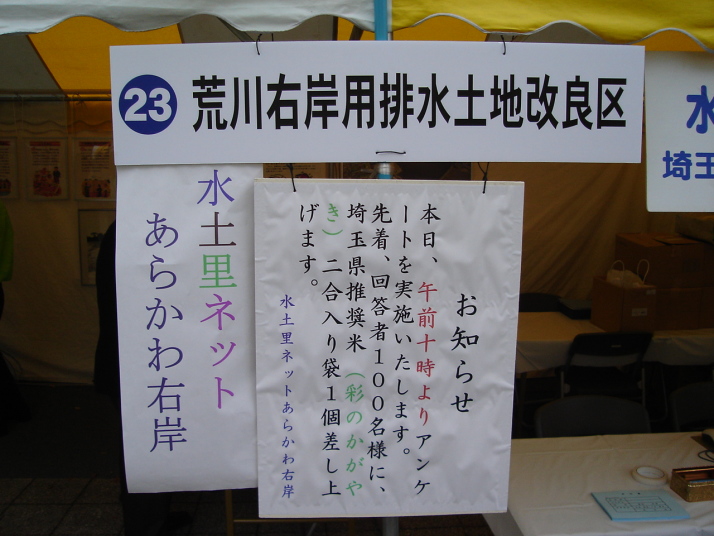 23 荒川右岸用排水土地改良区
水土里ネット
あらかわ右岸
お知らせ
本日、午前十時よりアンケ
ートを実施いたします。
先着、回答者100名様に、
埼玉県推奨米(彩のかがや
き)二合入り袋1個差し上
げます。
水土里ネットあらかわ右岸
水
埼玉